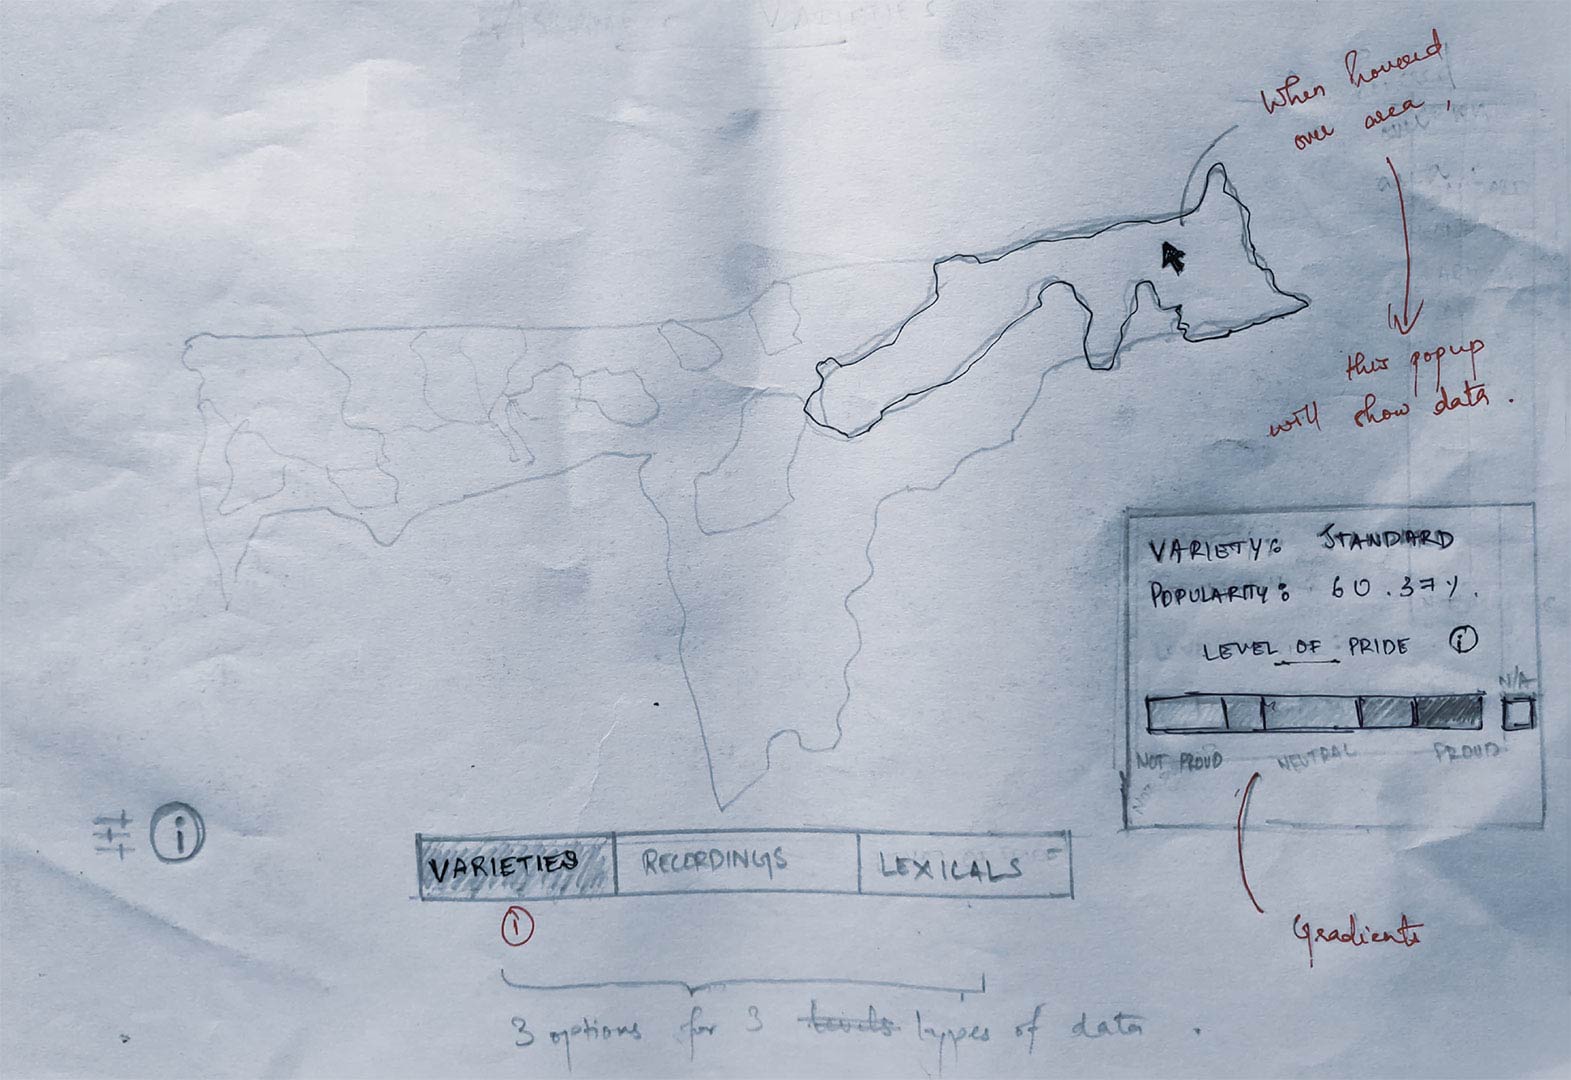 VARIETIES
When hovered
over area,
this popup
will show data.
VARIETY: STANDARD
POPULARITY: 60.37%.
LEVEL OF PRIDE i
N/A
NOT PROUD NEUTRAL PROUD
Gradients
i
VARIETIES RECORDINGS LEXICALS
1
3 options for 3 levels types of data.